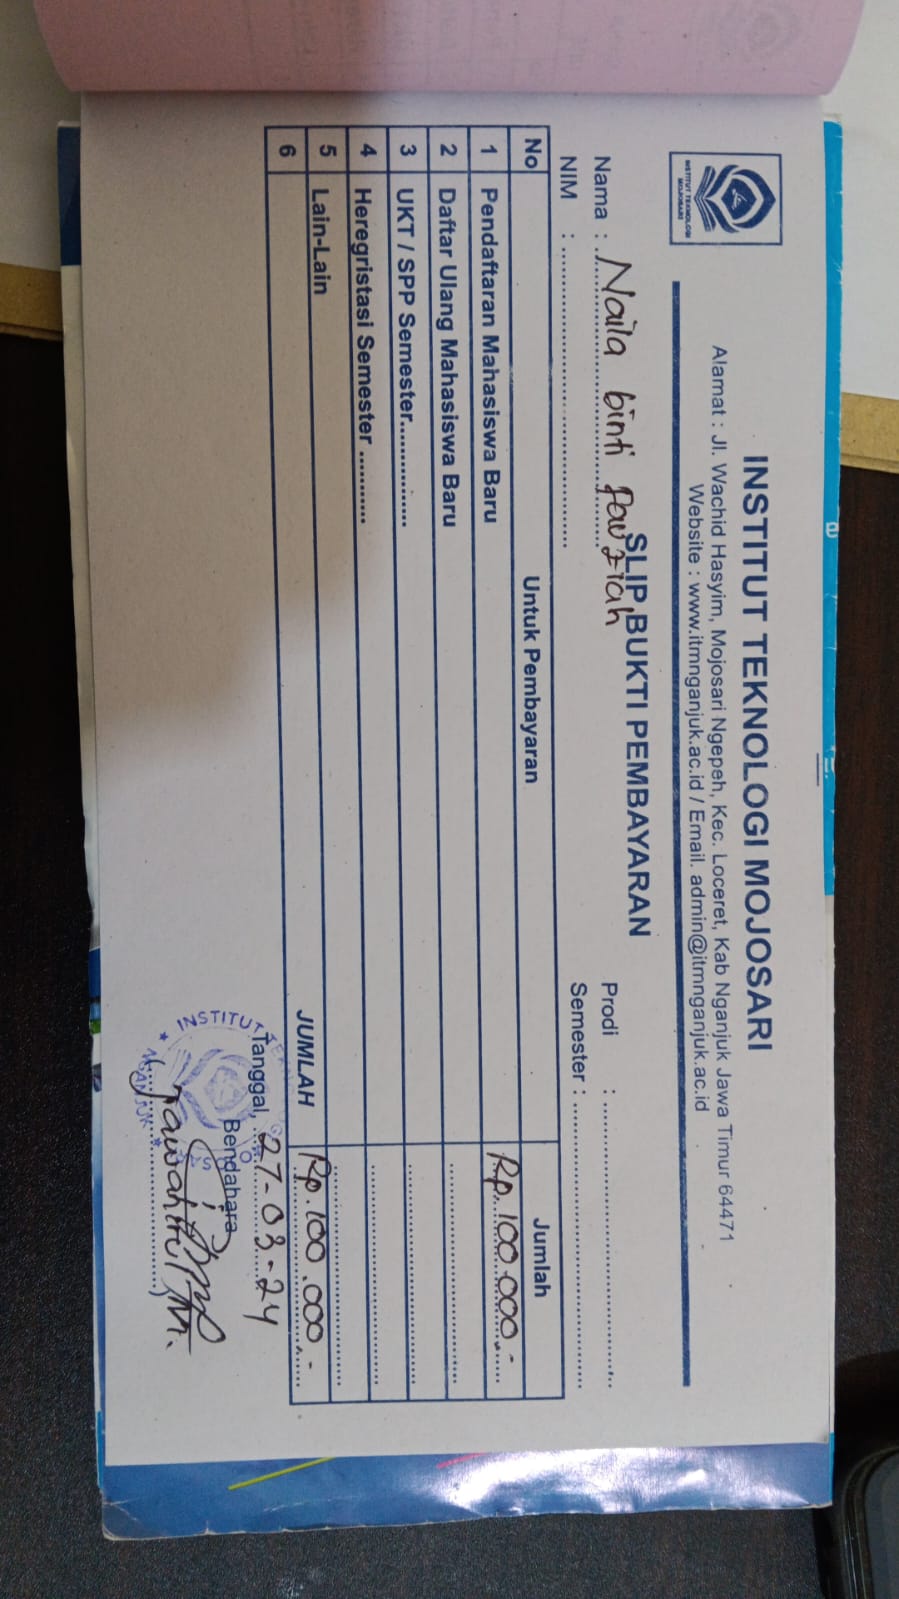 INSTITUT TEKNOLOGI
MOJOSARI
INSTITUT TEKNOLOGI MOJOSARI
Alamat : Jl. Wachid Hasyim, Mojosari Ngepeh, Kec. Loceret, Kab Nganjuk Jawa Timur 64471
Website : www.itmnganjuk.ac.id / Email. admin@itmnganjuk.ac.id
SLIP BUKTI PEMBAYARAN
Nama : Naila binti Fauziah
Prodi :
NIM :
Semester :
No Untuk Pembayaran Jumlah
1 Pendaftaran Mahasiswa Baru Rp. 100.000,-
2 Daftar Ulang Mahasiswa Baru
3 UKT / SPP Semester..............
4 Heregristasi Semester ...........
5 Lain-Lain
6 JUMLAH Rp. 100.000,-
Tanggal, 27-03-24
Bendahara
INSTITUT
NGANJUK